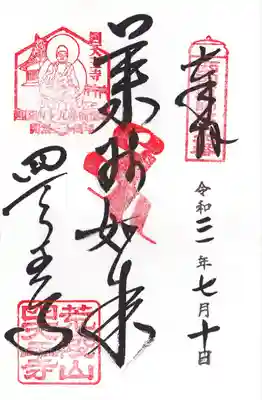 奉拝
令和三年七月十日
薬師如来
四天王寺
荒陵山
四天王寺